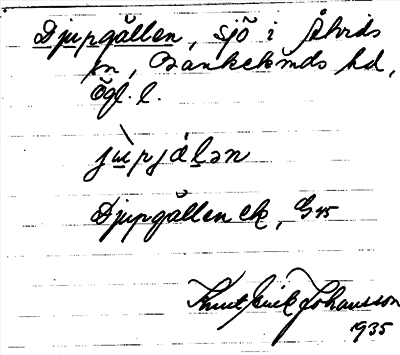 Djupgållen, sjö i Åtvids
sn, Bankekinds hd,
Ögl. l.
jùpjålən
Djupgållen ek, G 45
Knut Erik Johansson
1935